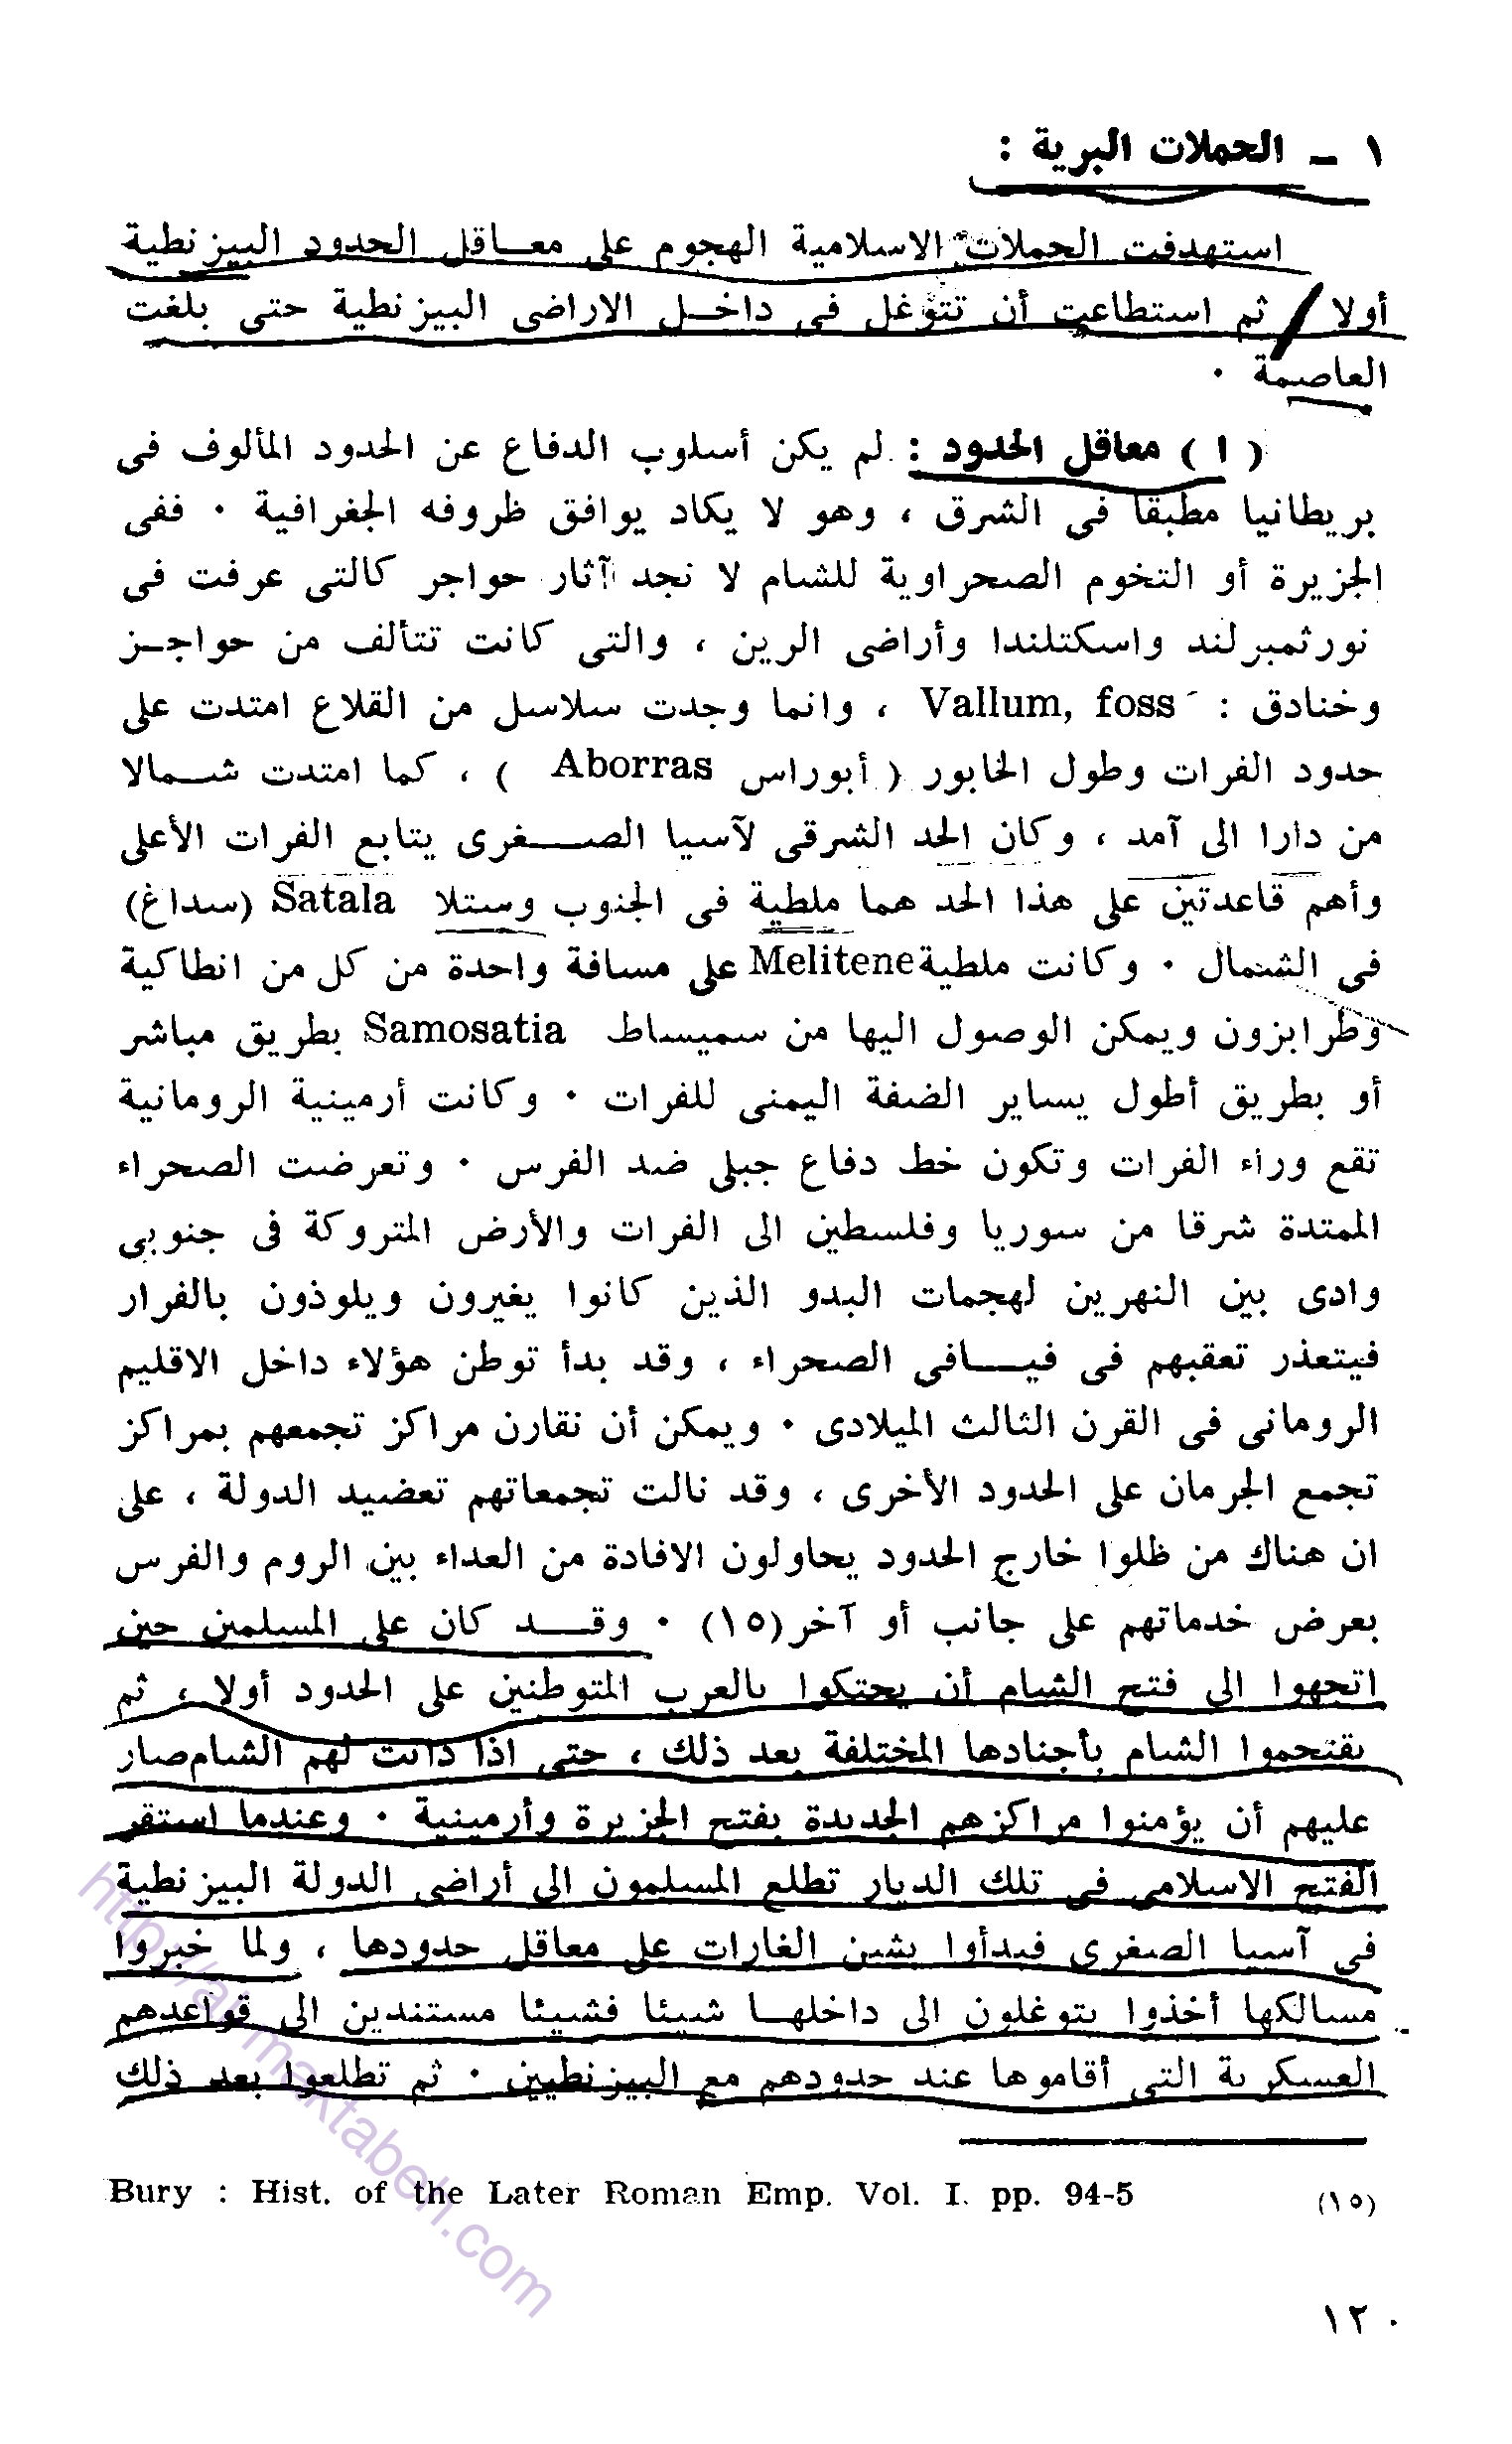 ١ ــ الحملات البرية :
استهدفت الحملات الاسلامية الهجوم على معــاقل الحدود البيزنطية
أولا / ثم استطاعت أن تتوغل فى داخــل الاراضى البيزنطية حتى بلغت
العاصمة ·
( ١ ) معاقل الحدود : لم يكن أسلوب الدفاع عن الحدود المألوف فى
بريطانيا مطبقا فى الشرق ، وهو لا يكاد يوافق ظروفه الجغرافية · ففى
الجزيرة أو التخوم الصحراوية للشام لا نجد آثار حواجر كالتى عرفت فى
نورثمبرلند واسكتلندا وأراضى الرين ، والتى كانت تتألف من حواجــز
وخنادق : Vallum, foss ، وانما وجدت سلاسل من القلاع امتدت على
حدود الفرات وطول الخابور ( أبوراس Aborras ) ، كما امتدت شــمالا
من دارا الى آمد ، وكان الحد الشرقى لآسيا الصــغرى يتابع الفرات الأعلى
وأهم قاعدتين على هذا الحد هما ملطية فى الجنوب وستلا Satala (سداغ)
فى الشمال · وكانت ملطية Melitene على مسافة واحدة من كل من انطاكية
وطرابزون ويمكن الوصول اليها من سميساط Samosatia بطريق مباشر
أو بطريق أطول يساير الضفة اليمنى للفرات · وكانت أرمينية الرومانية
تقع وراء الفرات وتكون خط دفاع جبلى ضد الفرس · وتعرضت الصحراء
الممتدة شرقا من سوريا وفلسطين الى الفرات والأرض المتروكة فى جنوبى
وادى بين النهرين لهجمات البدو الذين كانوا يغيرون ويلوذون بالفرار
فيتعذر تعقبهم فى فيــافى الصحراء ، وقد بدأ توطن هؤلاء داخل الاقليم
الرومانى فى القرن الثالث الميلادى · ويمكن أن نقارن مراكز تجمعهم بمراكز
تجمع الجرمان على الحدود الأخرى ، وقد نالت تجمعاتهم تعضيد الدولة ، على
ان هناك من ظلوا خارج الحدود يحاولون الافادة من العداء بين الروم والفرس
بعرض خدماتهم على جانب أو آخر(١٥) · وقــد كان على المسلمين حين
اتجهوا الى فتح الشام أن يحتكوا بالعرب المتوطنين على الحدود أولا ، ثم
يقتحموا الشام بأجنادها المختلفة بعد ذلك ، حتى اذا دانت لهم الشام صار
عليهم أن يؤمنوا مراكزهم الجديدة بفتح الجزيرة وأرمينية · وعندما استقر
الفتح الاسلامى فى تلك الديار تطلع المسلمون الى أراضى الدولة البيزنطية
فى آسيا الصغرى فبدأوا بشن الغارات على معاقل حدودها ، ولما خبروا
مسالكها أخذوا يتوغلون الى داخلهــا شيئا فشيئا مستندين الى قواعدهم
العسكرية التى أقاموها عند حدودهم مع البيزنطيين · ثم تطلعوا بعد ذلك
(١٥) Bury : Hist. of the Later Roman Emp. Vol. I. pp. 94-5
١٢٠
http://al-maktabeh.com